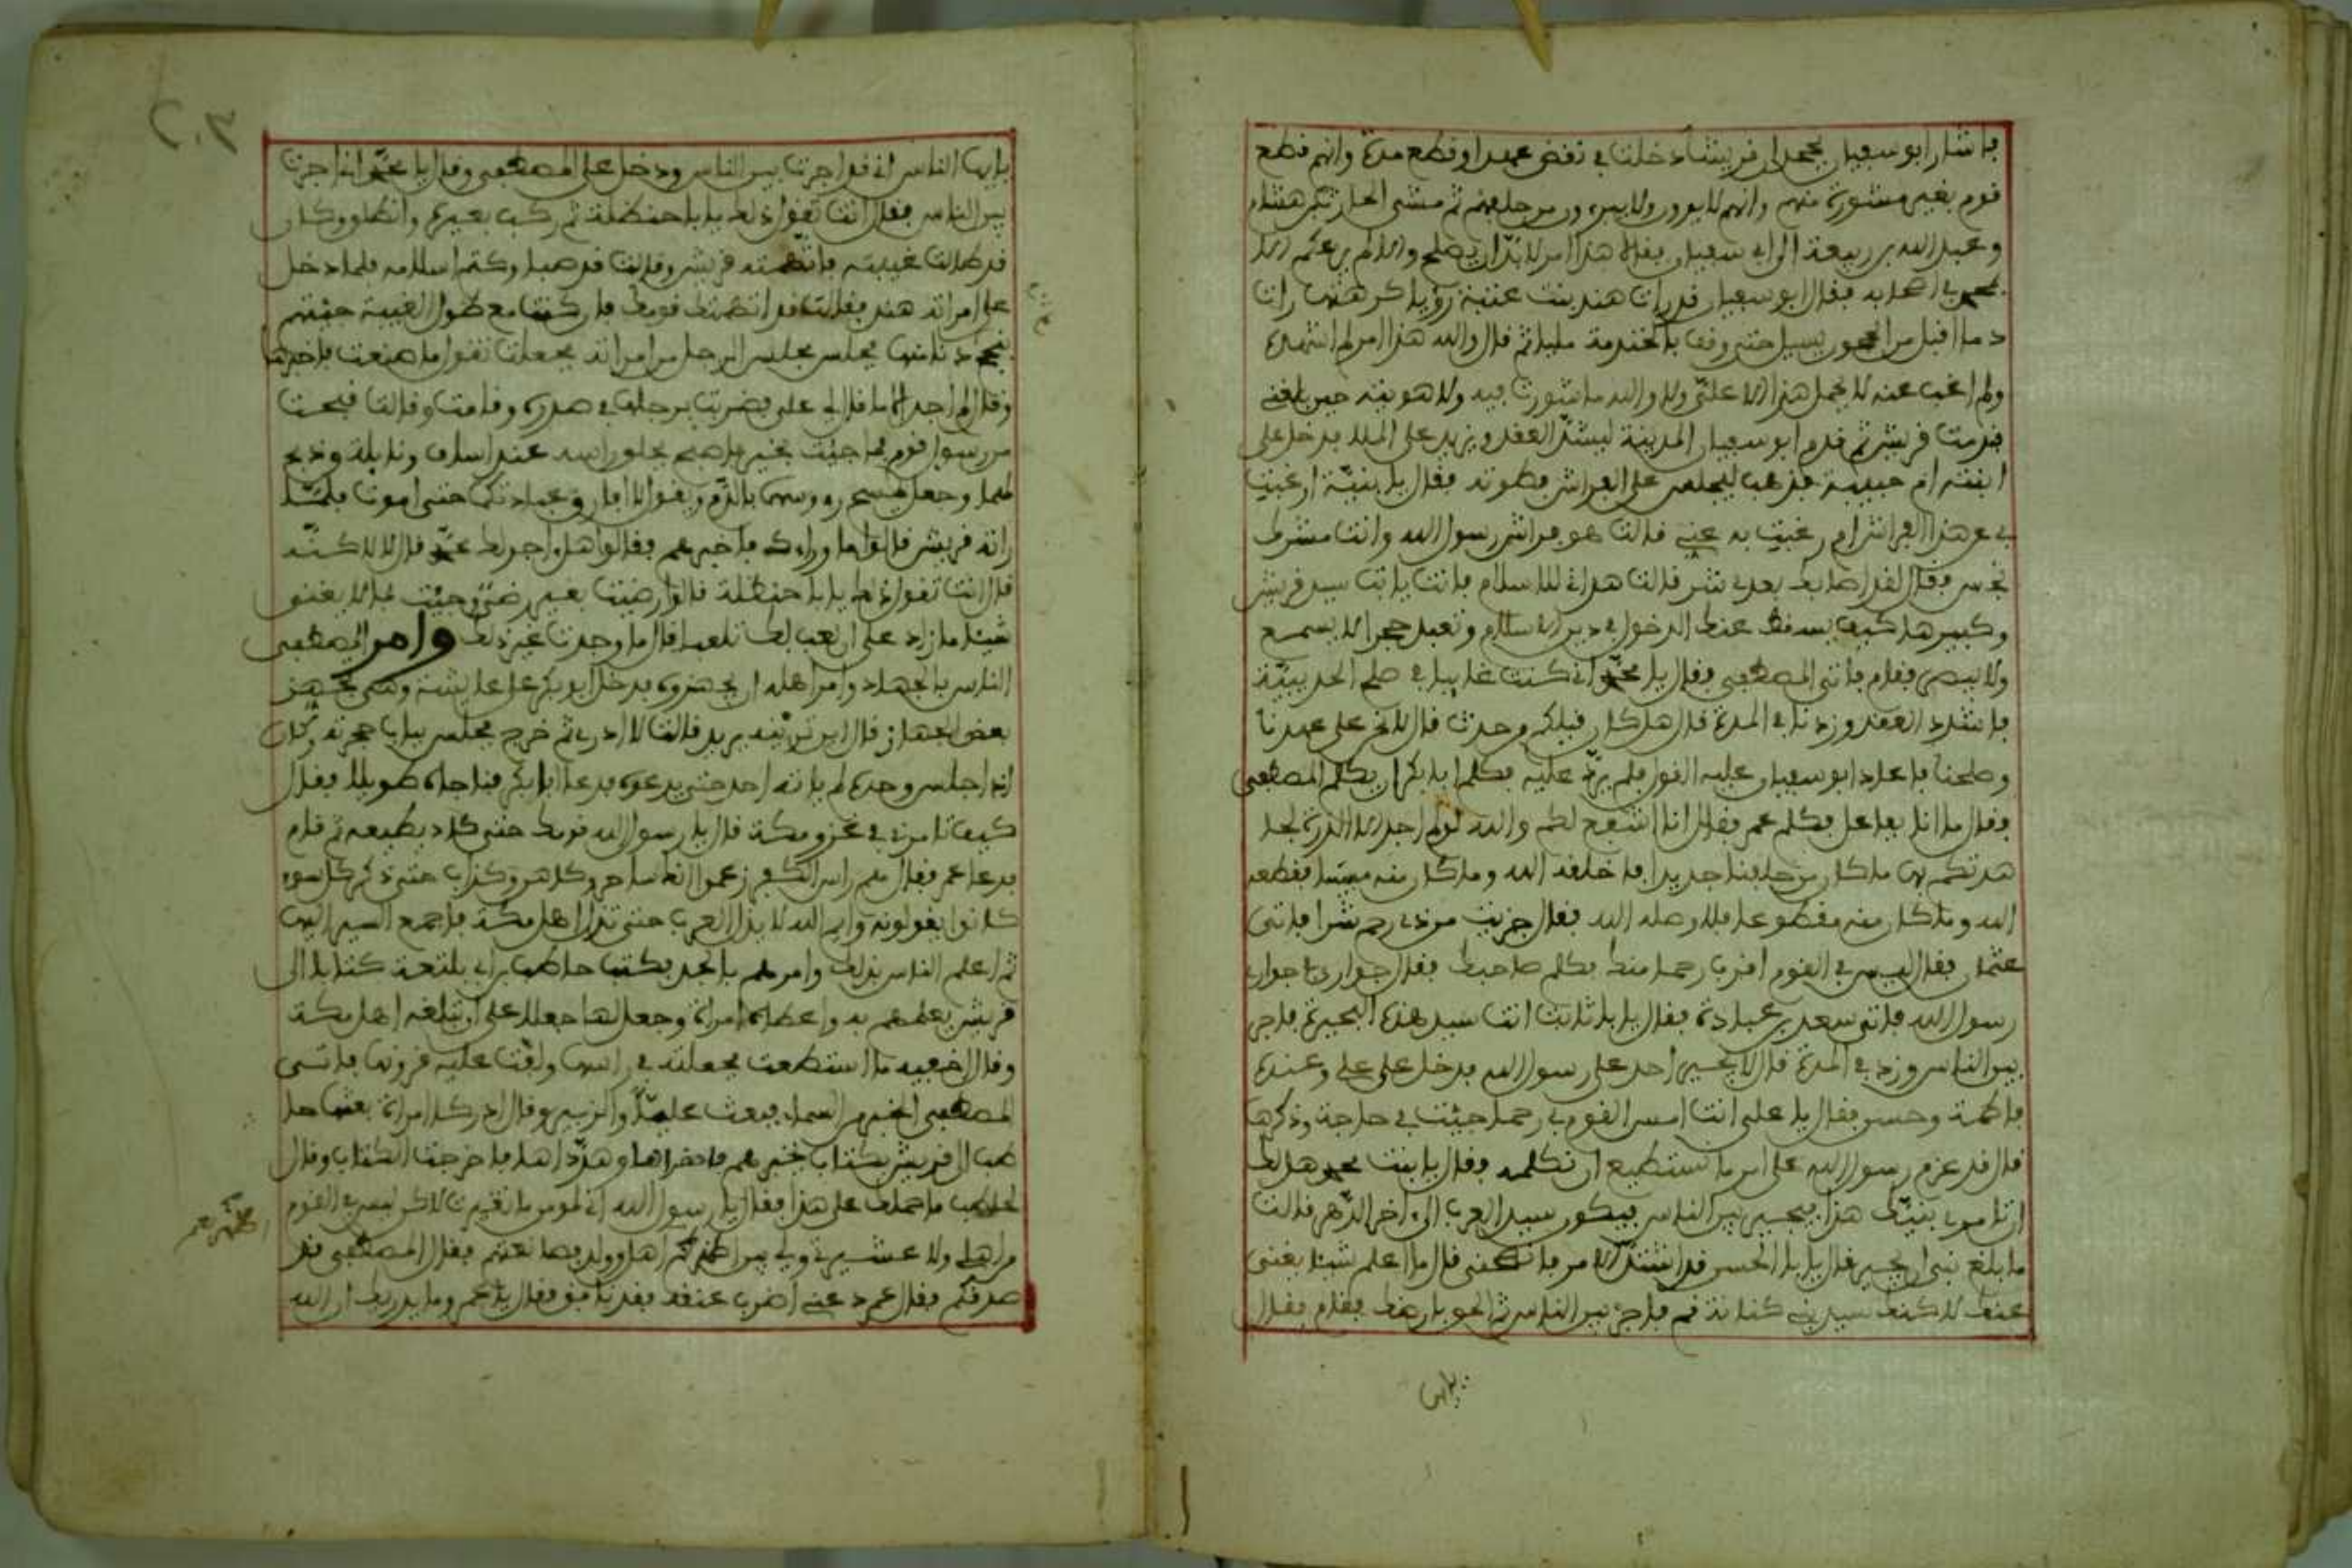 فأشار أبو سفيان بجحد أن قريشا دخلت في نقض عهد أو قطع مدة وأنهم قطع
قوم بغير مشورة منهم وأنهم لا يودون ولا ثم مشى الحارث بن هشام
وعبد الله بن ربيعة إلى أبي سفيان فقالا هذا أمر لا بد أن يصلح وإلا لم يرعكم إلا
محمد في أصحابه فقال أبو سفيان قد رأت هند بنت عتبة رؤيا كرهتها رأت
دما أقبل من الحجون يسيل حتى وقف بالخندمة مليا ثم قال والله هذا أمر لم أشهده
ولم أغب عنه لا يحمل هذا إلا علي ولا والله ما شورت فيه ولا هويته حين بلغني
فندمت قريش ثم قدم أبو سفيان المدينة ليشد العقد ويزيد على المدة فدخل على
ابنته أم حبيبة فذهب ليجلس على الفراش فطوته فقال يا بنية أرغبت
بي عن هذا الفراش أم رغبت به عني قالت هو فراش رسول الله وأنت مشرك
نجس فقال لقد أصابك بعدي شر قالت هداني للإسلام فأنت يا أبت سيد قريش
وكبيرها كيف يسقط عنك الدخول في دين الإسلام وتعبد حجرا لا يسمع
ولا يبصر فقام فأتى المصطفى فقال يا محمد إني كنت غايبا في صلح الحديبية
فاشدد العقد وزدنا في المدة قال هل كان قبلكم وحدث قال لا نحن على عهدنا
وصلحنا فأعاد أبو سفيان عليه القول فلم يرد عليه فكلم أبا بكر أن يكلم المصطفى
فقال ما أنا بفاعل فكلم عمر فقال أنا أشفع لكم والله لو لم أجد إلا الذر لجا
هدتكم به ما كان من حلفنا جديدا فأخلقه الله وما كان منه مبتا فقطعه
الله وما كان منه مقطوعا فلا وصله الله فقال جزيت من ذي رحم شرا فأتى
عثمان فقال ليس في القوم أقرب رحما منك فكلم صاحبك فقال جواري في جوار
رسول الله فأتى سعد بن عبادة فقال يا أبا ثابت أنت سيد هذه البحيرة فأجر
بين الناس وزد في المدة قال لا يجير أحد على رسول الله فدخل على علي وعنده
فاطمة وحسن فقال يا علي أنت أمس القوم بي رحما جئت في حاجة وذكرها
قال قد عزم رسول الله على أمر ما نستطيع أن نكلمه فقال يا بنت محمد هل لك
أن تأمري بنيك هذا فيجير بين الناس فيكون سيد العرب إلى آخر الدهر قالت
ما بلغ بني أن يجير قال يا أبا الحسن قد اشتد الأمر فانصحني قال ما أعلم شيئا يغني
عنك لكنك سيد بني كنانة قم فأجر بين الناس ثم الحق بأرضك فقام فقال
يا أيها
يا أيها الناس إني قد أجرت بين الناس ودخل على المصطفى وقال يا محمد إني أجرت
بين الناس فقال أنت تقول ذلك يا أبا حنظلة ثم ركب بعيره وانطلق وكان
قد طالت غيبته فاتهمته قريش وقالت قد صبا وكتم إسلامه فلما دخل
على امرأته هند فقالت قد اتهمك قومك فإن كنت مع طول الغيبة جئتهم
بنجح دنا منها فجلس مجلس الرجل من امرأته فجعلت تقول ما صنعت فأخبرها
وقال لم أجد إلا ما قال لي علي فضربت برجلها في صدره وقامت وقالت قبحت
من رسول قوم فما جئت بخير فأصبح فحلق رأسه عند إساف ونايلة وذبح
لهما وجعل يمسح رؤوسها بالدم ويقول لا أفارق عبادتكما حتى أموت فلما
رأته قريش قالوا ما وراءك فأخبرهم فقالوا هل أجو ذلك محمد قال لا لكنه
قال أنت تقول ذلك يا أبا حنظلة قالوا رضيت بغير رضى وجئت بما لا يغني
شيئا ما زاد علي أن لعب لك تلعبا قال ما وجدت غير ذلك وأمر المصطفى
الناس بالجهاد وأمر أهله أن يجهزوه فدخل أبو بكر على عايشة وهي تجهز
بعض الجهاز قال أين ترينه يريد قالت لا أدري ثم خرج فجلس بباب حجرته وكان
إذا جلس وحده لم يأته أحد حتى يدعوه فدعا أبا بكر فناجاه طويلا فقال
كيف تأمرني في غزو مكة قال يا رسول الله قومك حتى كاد يطيعه ثم قام
فدعا عمر فقال هم رأس الكفر زعموا أنك ساحر وكاهن وكذاب حتى ذكر كل سوء
كانوا يقولونه وأيم الله لا تذل العرب حتى تذل أهل مكة فأجمع السير إليها
ثم أعلم الناس بذلك وأمرهم بالجد فكتب حاطب بن أبي بلتعة كتابا إلى
قريش يعلمهم به وأعطاه امرأة وجعل لها جعلا على أن تبلغه أهل مكة
وقال أخفيه ما استطعت فجعلته في رأسها ولفت عليه قرونها فأتى
المصطفى الخبر من السماء فبعث عليا والزبير وقال أدركا امرأة بعثها حا
طب إلى قريش بكتاب يخبرهم فأحضراها وهدداها فأخرجت الكتاب وقال
لحاطب ما حملك على هذا فقال يا رسول الله إني لمومن ما تغيرت لاكن ليس في القوم
من أهلي ولا عشيرتي ولي بين أظهركم أهل وولد فصانعتهم فقال المصطفى قد
صدقكم فقال عمر دعني أضرب عنقه فقد نافق فقال يا عمر وما يدريك أن الله
أظهرهم
٢٠٣